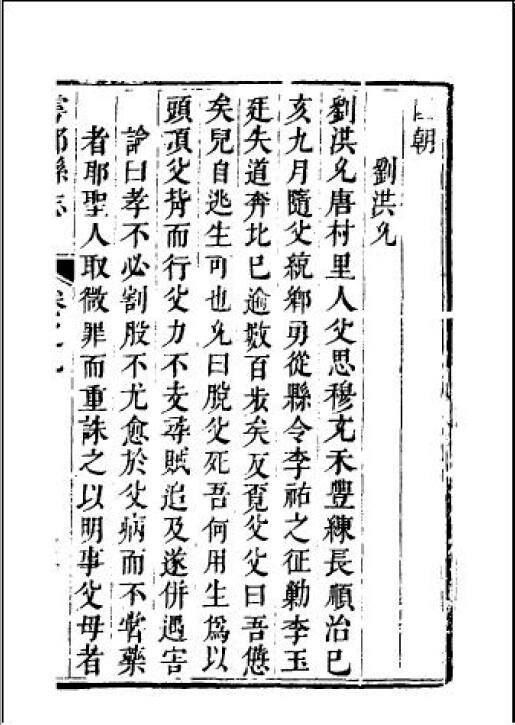 朝
劉洪允
劉洪允唐村里人父思穆充禾豐練長順治已
亥九月隨父統鄉勇從縣令李祐之征勦李玉
廷失道奔北已逾數百步矣反覓父父曰吾憊
矣兒自逃生可也允曰脫父死吾何用生爲以
頭頂父背而行父力不支尋賊追及遂併遇害
論曰孝不必割股不尤愈於父病而不嘗藥
者耶聖人取微罪而重誅之以明事父母者
雩都縣志 卷之